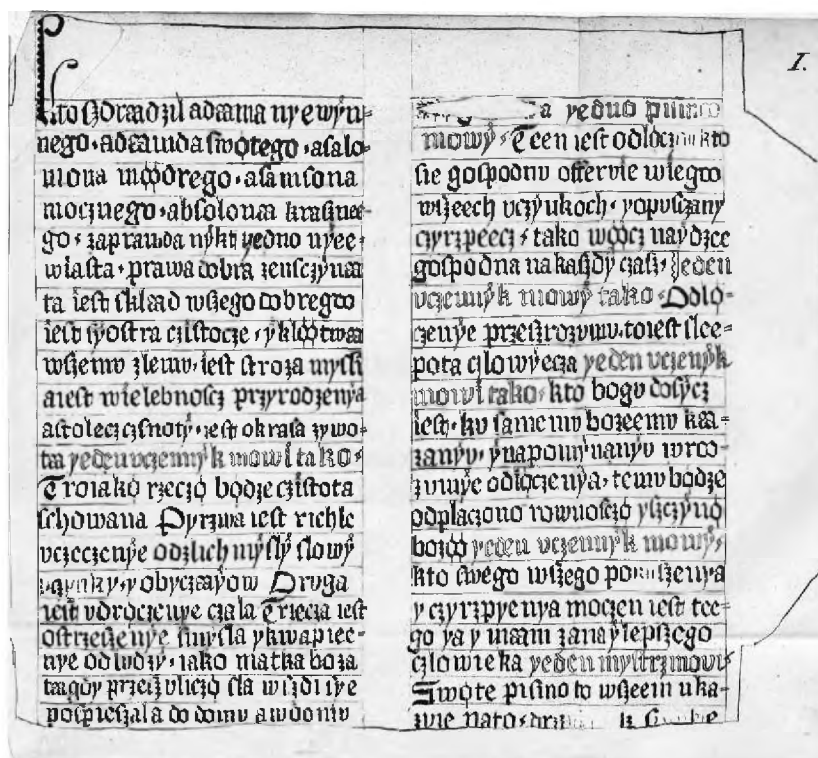 I.
Kto sdradził adama nyewyn-
nego · adawida swøtego · asalo-
mona mødrego · asamsona
mocznego · absolona krasne-
go · zaprawda nykt yedno nyee-
wiasta · prawa dobra zensczyna
ta iest sklad wszego dobrego
iest syostra czistocze · ykløtwa
wszemv zlemv · iest stroza myſli
aiest wielebnoscz przyrodzenya
astolecz cznoty · iest okrasa zywo-
ta yeden vczennyk mowi tako ·
Troiako rzeczø bødze czistota
schowana Pyrzwa iest richle
vczeczenye odzlich myſly slowy
vczynky · y obyczayow Druga
iest vdrøczenye czala Trzecia iest
ostrzeszenye smysla ykwapie-
nye odlvdzy · iako matka boza
tagdy przezvliczø sla wszdi sye
pospieszala do domv awdomv
a yedno pismo
mowy · Teen iest odloczon kto
sie gospodnv offervie wiego
wszeech vczynkoch · yopvsczany
czyrzpeecz · tako wøcz naydzee
gospodna nakaszdy czasz · Jeden
vczennyk mowy tako · Odlo-
czenye przeszrozvmv · toiest slee-
pota czlowyecza yeden vczennyk
mowi tako · kto bogv dosycz
iest · kv samemv bozeemv kaa-
zanyv · ynapomynanyv wro-
zvmye odloczenya · temv bødze
odplaczono rownosczø ysczynø
bozø yeden vczennyk mowy ·
kto swego wszego porvszenya
y czyrzpyenya moczen iest tee-
go ya y mam zanaylepszego
czlowieka yeden mystrz mowi
Swøte pismo to wszeem vka-
zvie nato ·